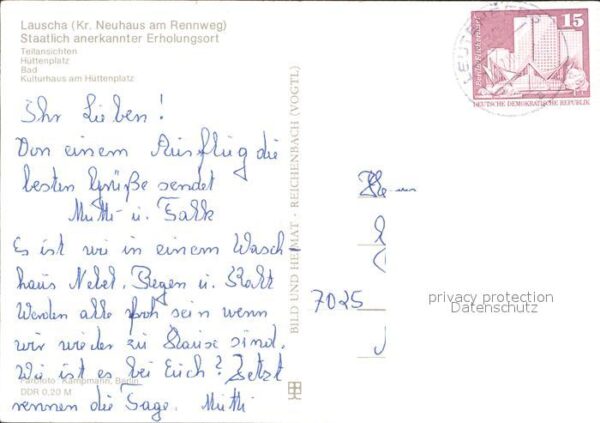 Lauscha (Kr. Neuhaus am Rennweg)
Staatlich anerkannter Erholungsort
Teilansichten
Hüttenplatz
Bad
Kulturhaus am Hüttenplatz
Ihr Lieben!
Von einem Ausflug die
besten Grüße sendet
Mutti u. Falk
Es ist wie in einem Wasch-
haus Nebel, Regen u. Kalt
Werden alle froh sein wenn
wir wieder zu Hause sind.
Wie ist es bei Euch? Jetzt
rennen die Tage. Mutti
Farbfoto: Kampmann, Berlin
DDR 0,20 M
BILD UND HEIMAT · REICHENBACH (VOGTL)
15
DEUTSCHE DEMOKRATISCHE REPUBLIK
7025
privacy protection
Datenschutz